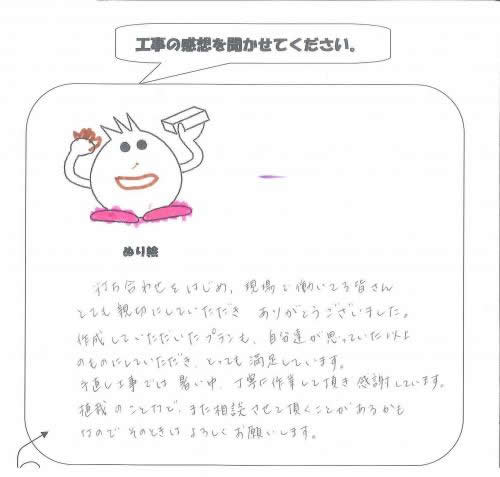 工事の感想を聞かせてください。
ぬり絵
打ち合わせをはじめ、現場で働いてる皆さん
とても親切にしていただき ありがとうございました。
作成していただいたプランも、自分達が思っていた以上
のものにしていただき、とっても満足しています。
手直し工事では暑い中、丁寧に作業して頂き感謝しています。
植栽のことなどで、また相談させて頂くことがあるかも
なので そのときは よろしくお願いします。